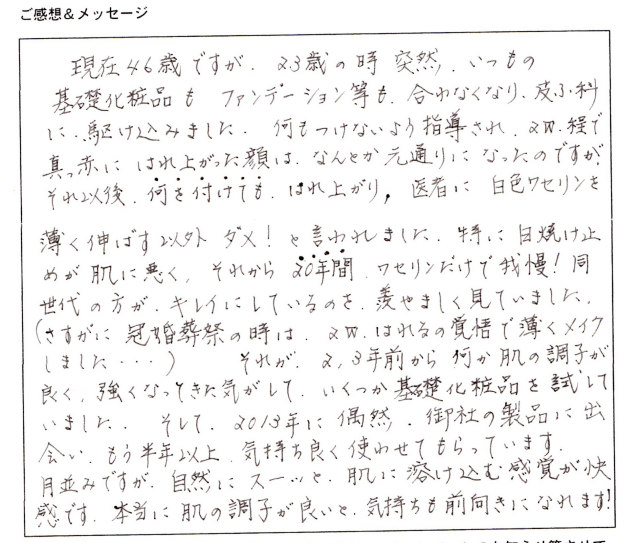 ご感想＆メッセージ
現在46歳ですが、23歳の時 突然、いつもの
基礎化粧品も ファンデーション等も、合わなくなり、皮ふ科
に、駆け込みました。何もつけないよう指導され、2W.経て
真っ赤に はれ上がった顔は、なんとか 元通りに なったのですが
それ以後、何を付けても、はれ上がり、医者に 白色ワセリンを
薄く伸ばす以外 ダメ！と言われました。特に日焼け止
めが 肌に悪く、それから 20年間、ワセリンだけで我慢！同
世代の方が、キレイにしているのを、羨やましく見ていました。
（さすがに 冠婚葬祭の時は、2W.はれるの覚悟で薄くメイク
しました・・・） それが、2,3年前から 何か肌の調子が
良く、強くなってきた気がして、いくつか基礎化粧品を試して
いました。そして、2013年に 偶然、御社の製品に出
会い、もう半年以上、気持ち良く使わせてもらっています。
月並みですが、自然に スーッと、肌に溶け込む感覚が快
感です。本当に 肌の調子が良いと、気持ちも前向きになれます！